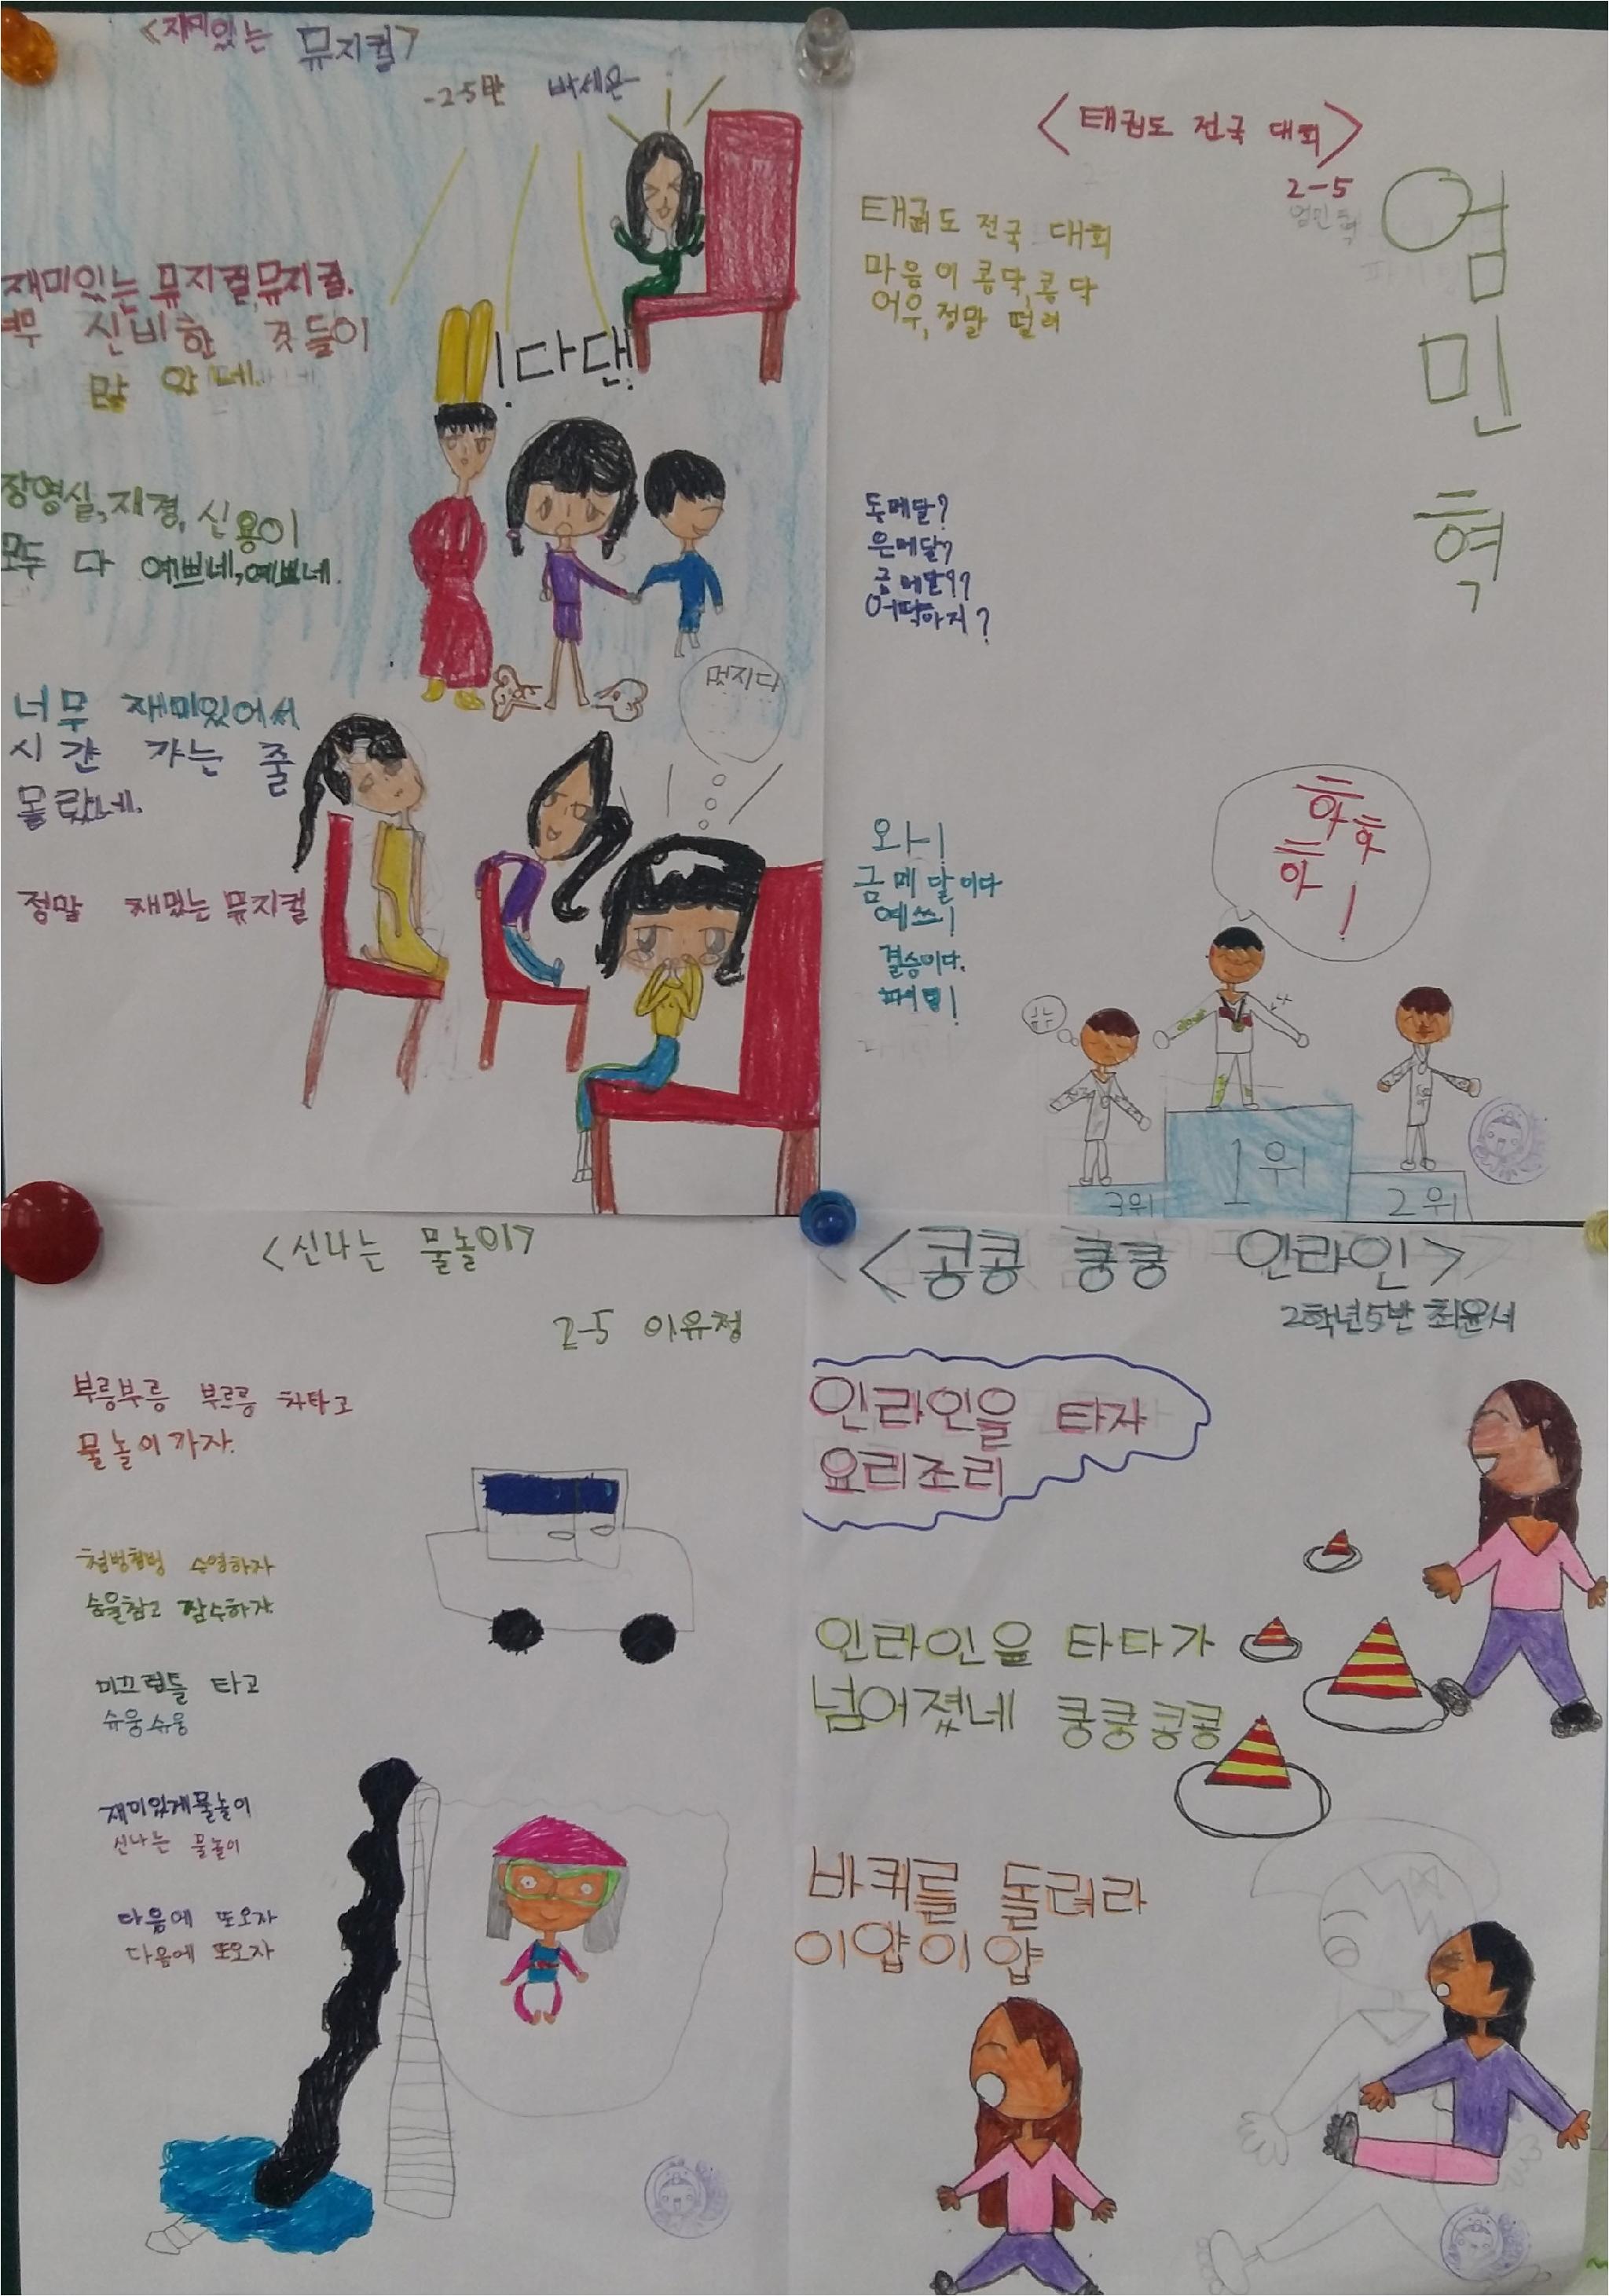 <재미있는 뮤지컬>
-2-5반 박세은-
재미있는 뮤지컬,뮤지컬.
너무 신비한 것들이
많았네.
!다댄!
장영실,지경,신용이
모두 다 예쁘네,예쁘네.
너무 재미있어서
시간 가는 줄
몰랐네.
정말 재밌는 뮤지컬
멋지다
<태권도 전국 대회>
2-5
엄민혁
엄민혁
태권도 전국 대회
마음이 콩닥,콩닥
어우,정말 떨려
동메달?
은메달?
금메달??
어떡하지?
와!
금메달이다
예쓰!
결승이다.
파이팅!
하하
하!
3위
1위
2위
<신나는 물놀이>
2-5 이유정
부릉부릉 부르릉 차타고
물놀이가자.
첨벙첨벙 수영하자
숨을참고 잠수하자
미끄럼틀 타고
슈웅슈웅
재미있게물놀이
신나는 물놀이
다음에 또오자
다음에 또오자
<콩콩 쿵쿵 인라인>
2학년5반 최윤서
인라인을 타자
요리조리
인라인을 타다가
넘어졌네 쿵쿵콩콩
바퀴를 돌려라
이얍이얍